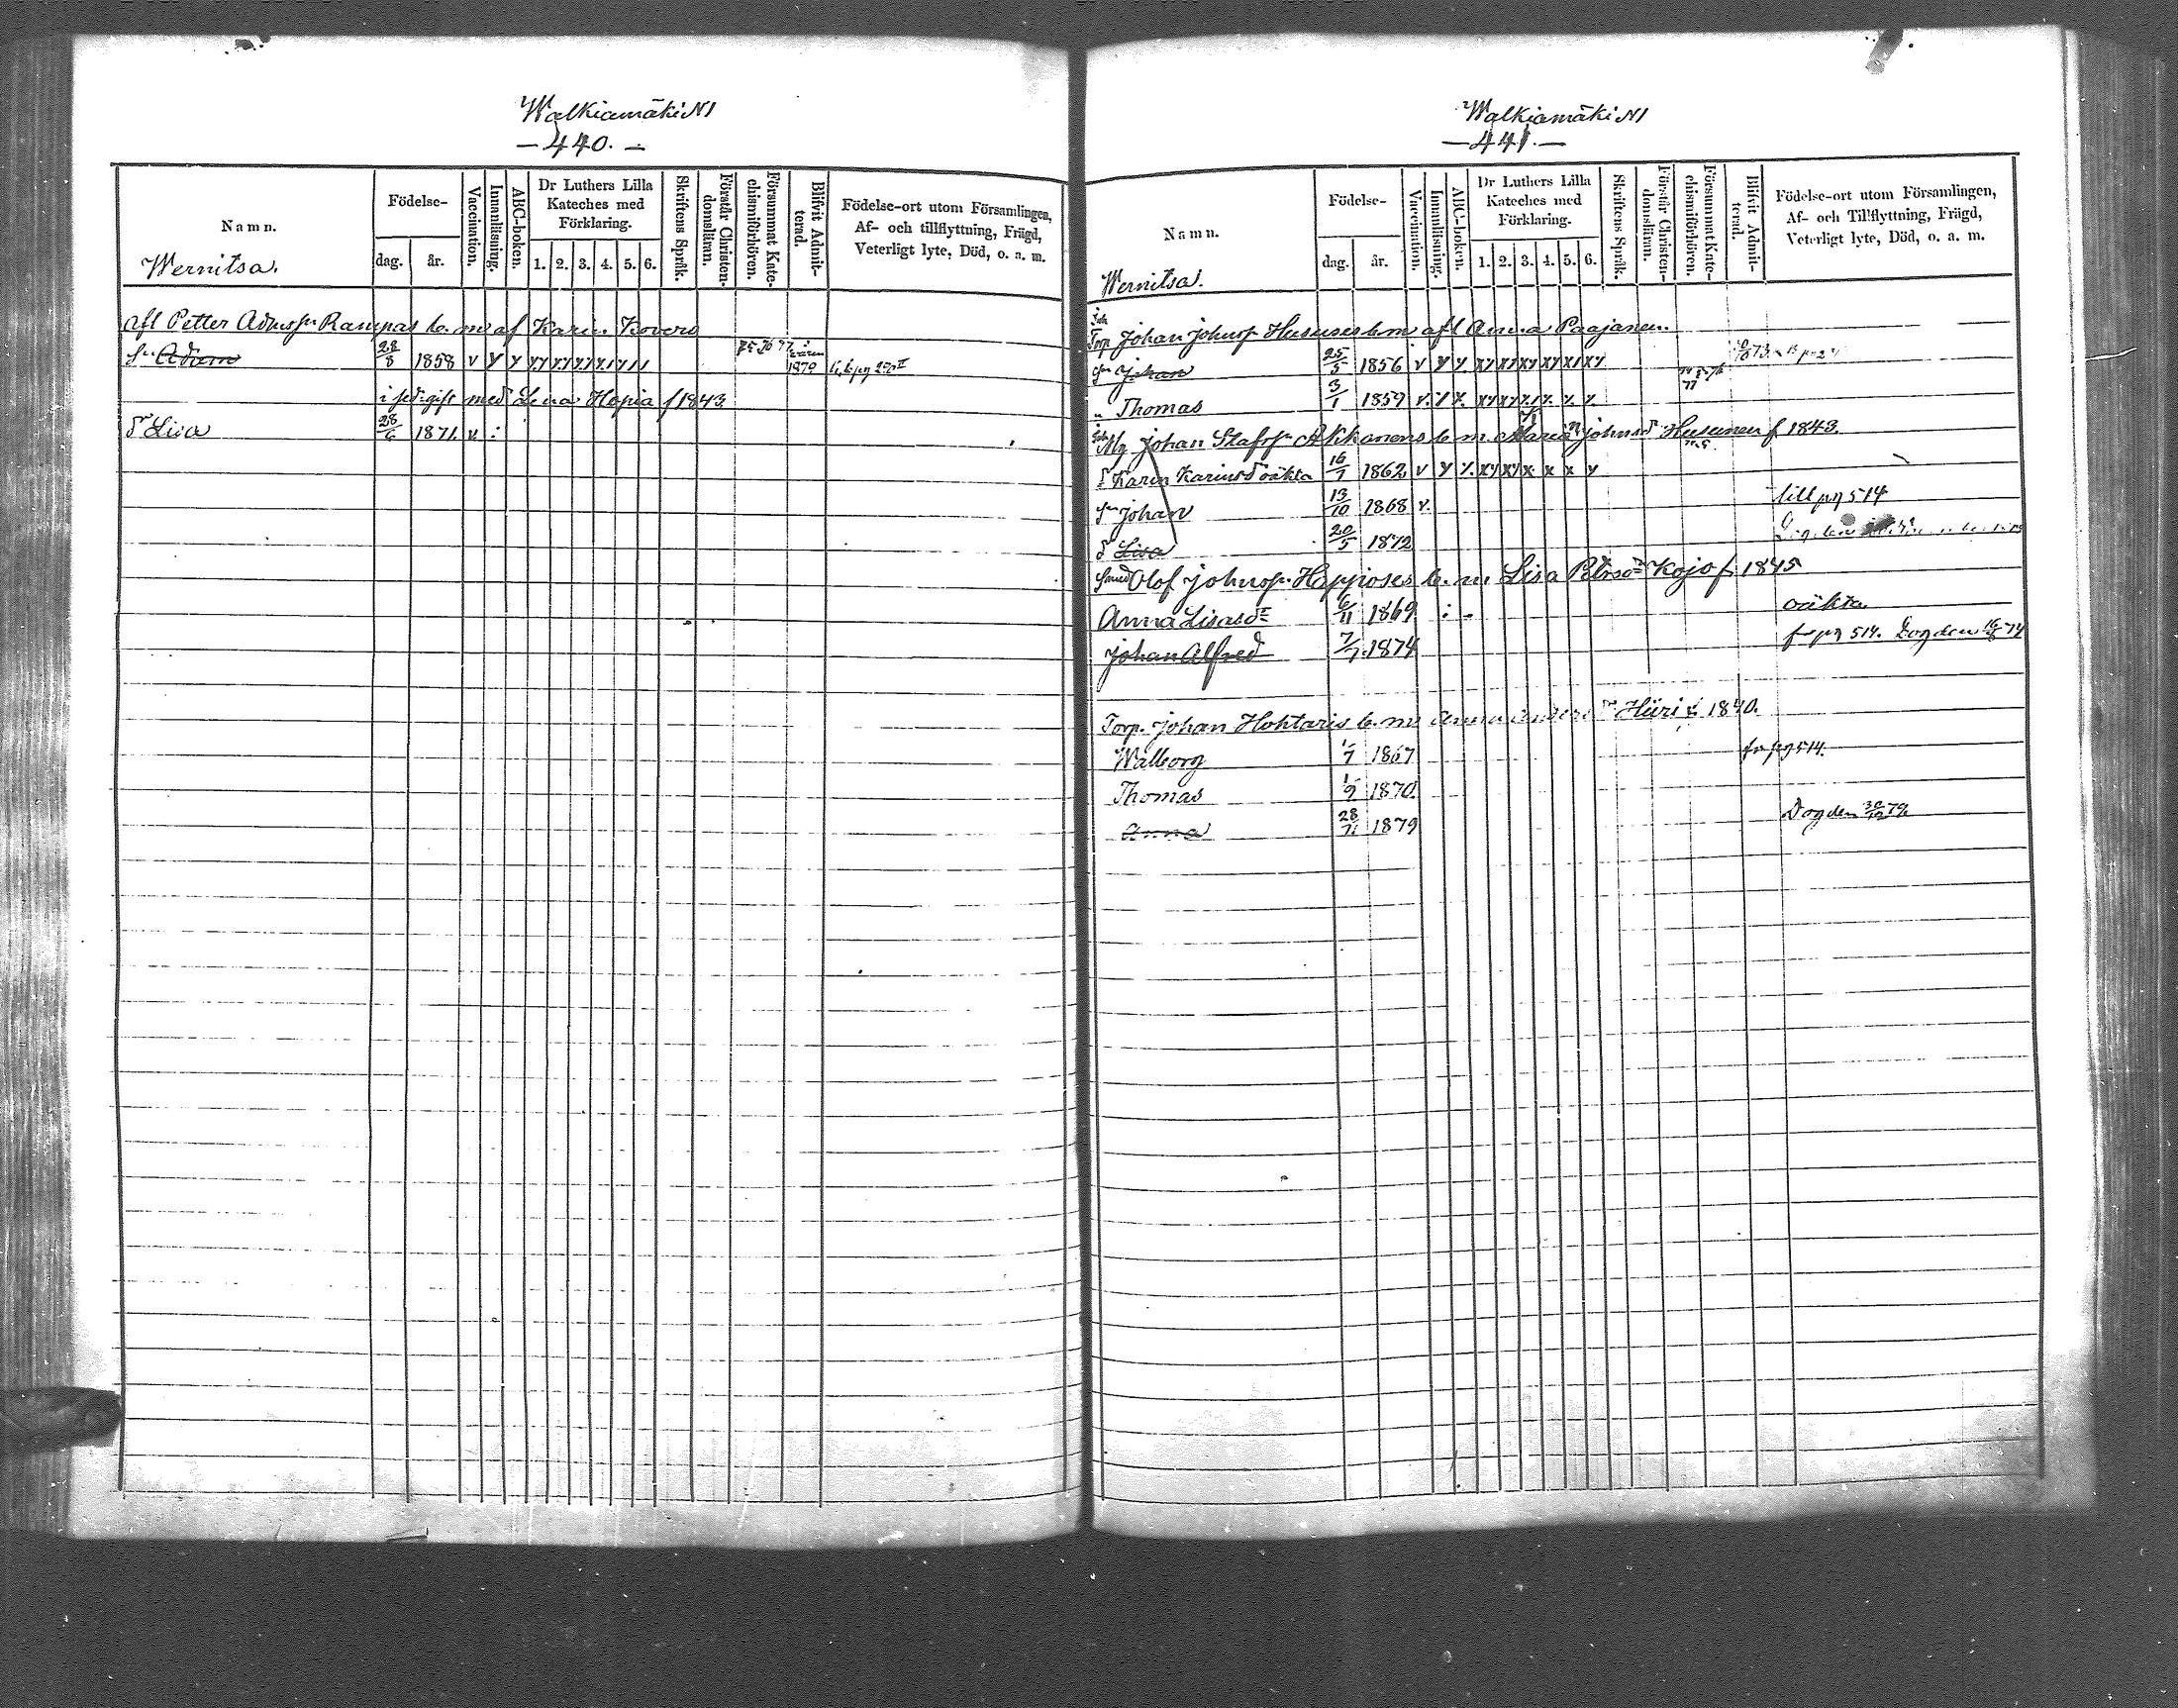 Walkiamäki N1
— 440. —
Namn.
Wernitsa.
Födelse-
dag. år.
Vaccination.
Innanläsning.
ABC-boken.
Dr Luthers Lilla Kateches med Förklaring.
1. 2. 3. 4. 5. 6.
Skriftens Språk.
Förstår Christen-domsläran.
Försummat Kate-chismiförhören.
Blifvit Admit-terad.
Födelse-ort utom Församlingen, Af- och tillflyttning, Frägd, Veterligt lyte, Död, o. a. m.
afl Petter Adamsn Rampas b. m af Karin Kovero
Sn Adam 28/8 1858 v y y 75 76 77 1879
i sed. gift med Lena Hopia f 1843.
Dr Lisa 28/6 1871 v. :
Walkiamäki N1
— 441. —
Namn.
Wernitsa.
Födelse-
dag. år.
Vaccination.
Innanläsning.
ABC-boken.
Dr Luthers Lilla Kateches med Förklaring.
1. 2. 3. 4. 5. 6.
Skriftens Språk.
Förstår Christen-domsläran.
Försummat Kate-chismiförhören.
Blifvit Admit-terad.
Födelse-ort utom Församlingen, Af- och Tillflyttning, Frägd, Veterligt lyte, Död, o. a. m.
Torp Johan Johnsp Hususes b m afl Anna Paajanen.
Sn Johan 25/5 1856 v y y xy xy xy xy xy xy
" Thomas 3/1 1859 v.
Johan Stafsp Akkanens b. m. Maria Johnsd Husunen f 1843.
d Karin Karinsd oäkta 16/7 1862 v y
Sn Johan 13/10 1868 v. till pg 514
d Lisa 20/5 1872
Smed Olof Johnsp. Happoses b. m. Lisa Petrsd Kojo f 1845
Anna Lisasd 6/11 1869 : . oäkta.
Johan Alfred 7/7 1874 fr pg 514. Dog den 74
Torp. Johan Hohtaris b. m. Anna Hiiri f. 1840.
Walborg 1/7 1867 fr pg 514.
Thomas 1/9 1870.
Anna 28/11 1879 Dog den 30/12 79